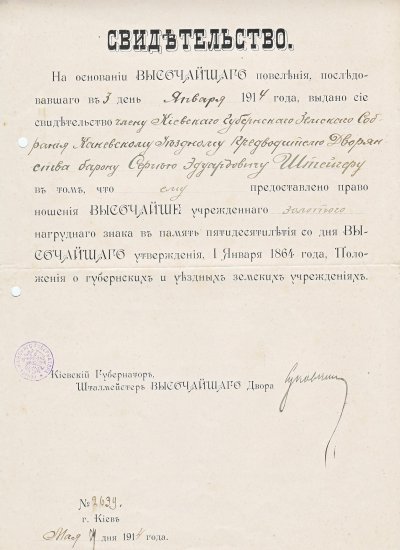 СВИДѢТЕЛЬСТВО.
На основаніи ВЫСОЧАЙШАГО повелѣнія, послѣдо-
вавшаго въ 3 день Января 1914 года, выдано сіе
свидѣтельство члену Кіевскаго Губернскаго Земскаго Соб-
ранія Каневскому Уѣздному Предводителю Дворян
ства барону Сергѣю Эдуардовичу Штейгеру
въ томъ, что ему предоставлено право
ношенія ВЫСОЧАЙШЕ учрежденнаго золотого
нагруднаго знака въ память пятидесятилѣтія со дня ВЫ-
СОЧАЙШАГО утвержденія, 1 Января 1864 года, Поло-
женія о губернскихъ и уѣздныхъ земскихъ учрежденіяхъ.
Кіевскій Губернаторъ,
Шталмейстеръ ВЫСОЧАЙШАГО Двора
№ 2639.
г. Кіевъ
Мая дня 1914 года.